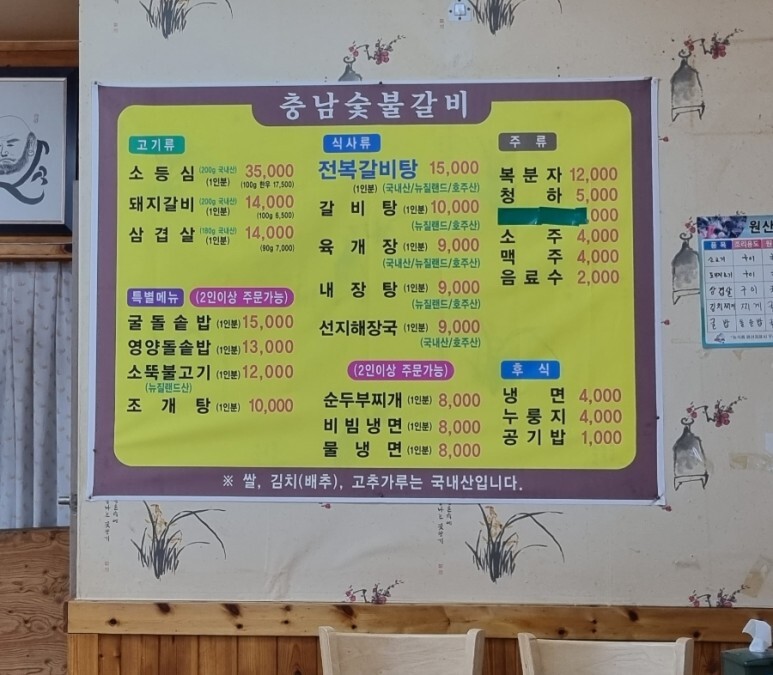 충남숯불갈비
고기류
소등심 (200g 국내산) (1인분) 35,000
(100g 한우 17,500)
돼지갈비 (200g 국내산) (1인분) 14,000
(100g 6,500)
삼겹살 (180g 국내산) (1인분) 14,000
(90g 7,000)
특별메뉴 (2인이상 주문가능)
굴돌솥밥 (1인분) 15,000
영양돌솥밥 (1인분) 13,000
소뚝불고기 (1인분) 12,000
(뉴질랜드산)
조개탕 (1인분) 10,000
식사류
전복갈비탕 15,000
(1인분) (국내산/뉴질랜드/호주산)
갈비탕 (1인분) 10,000
(뉴질랜드/호주산)
육개장 (1인분) 9,000
(국내산/뉴질랜드/호주산)
내장탕 (1인분) 9,000
(뉴질랜드/호주산)
선지해장국 (1인분) 9,000
(국내산/호주산)
(2인이상 주문가능)
순두부찌개 (1인분) 8,000
비빔냉면 (1인분) 8,000
물냉면 (1인분) 8,000
주류
복분자 12,000
청하 5,000
,000
소주 4,000
맥주 4,000
음료수 2,000
후식
냉면 4,000
누룽지 4,000
공기밥 1,000
※ 쌀, 김치(배추), 고추가루는 국내산입니다.
원산
품목 조리용도 원
구이
구이
삼겹살 구이
김치찌개 찌개